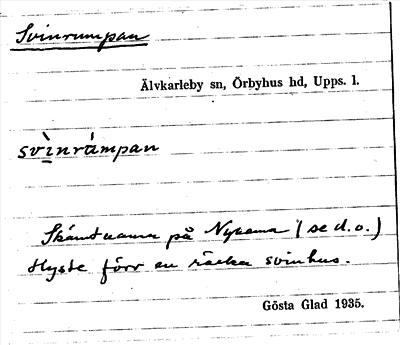 Svinrumpan
Älvkarleby sn, Örbyhus hd, Upps. l.
svìnrùmpan
Skämtnamn på Nykarna (se d. o.)
Hyste förr en räcka svinhus.
Gösta Glad 1935.